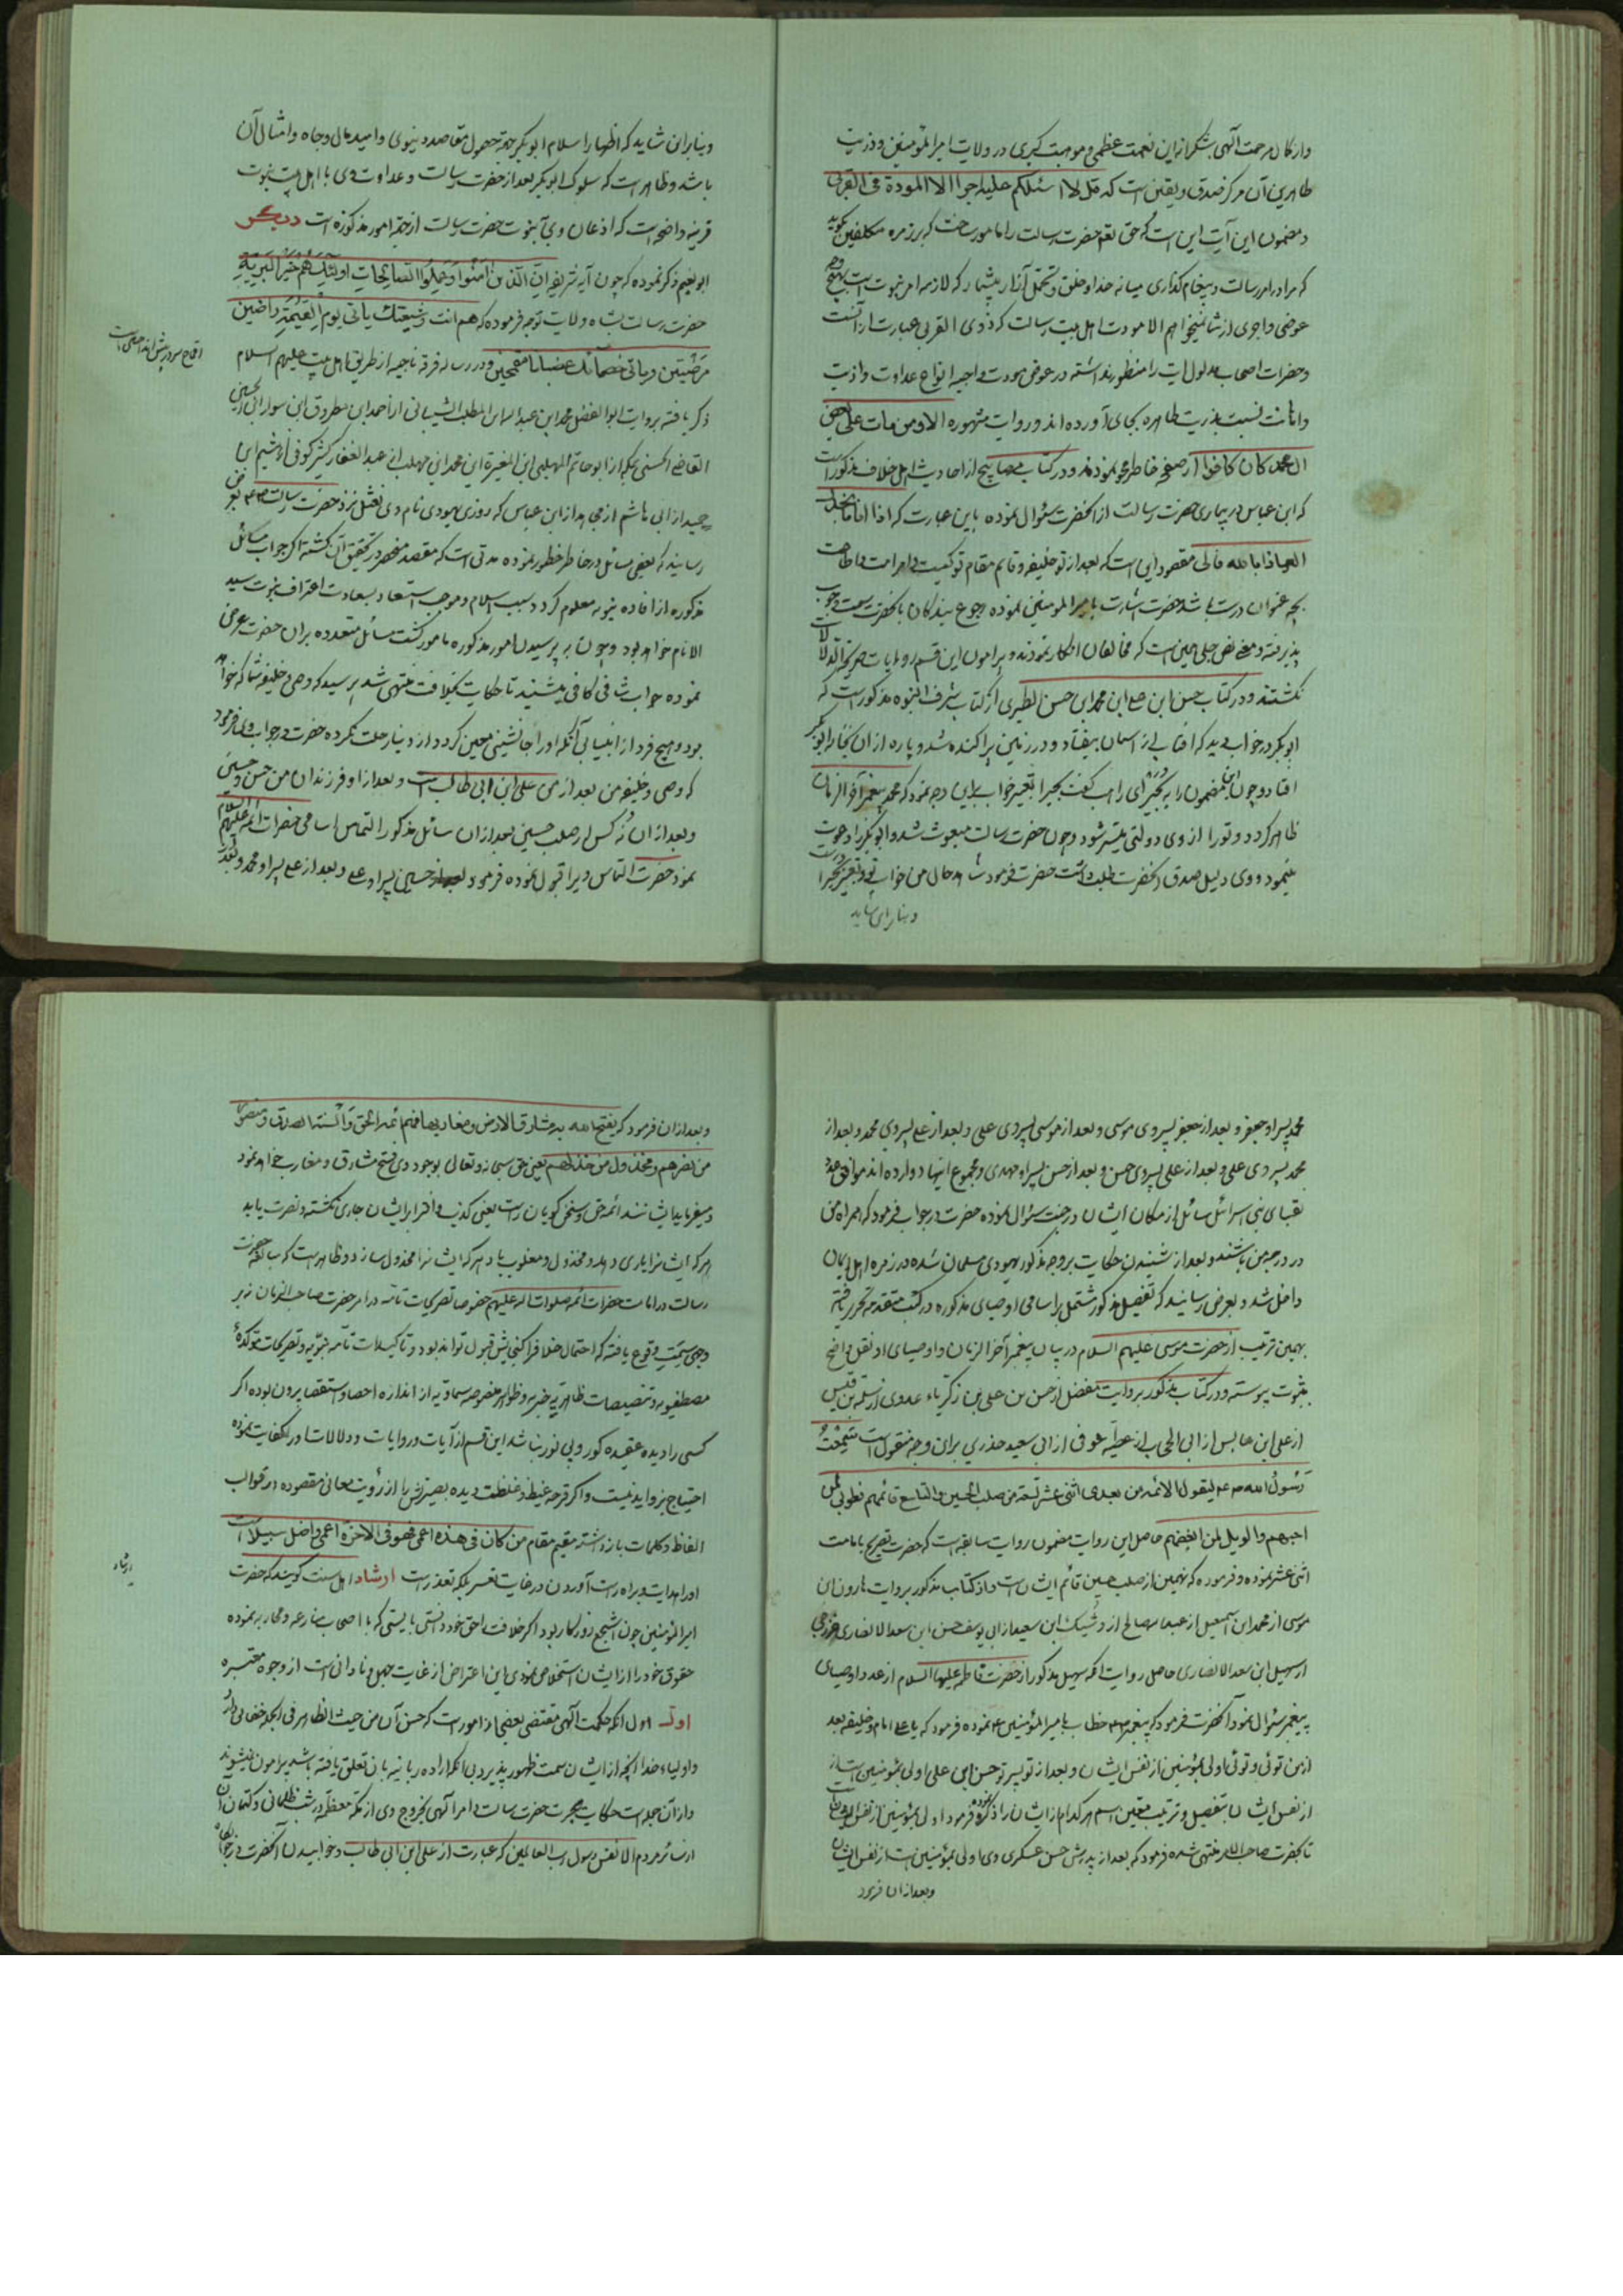 وازکمال مرحمت آلهی بشکرانه این نعمت عظمی و موهبت کبری در ولایت امیرالمؤمنین و ذریت
طاهرین آن مرکز صدق و یقین است که قل لا اسئلکم علیه اجرا الا المودة فی القربی
و مضمون این آیت این است که حق تعم حضرت رسالت را مامور ساخت که بر زمره مکلفین بگوید
که مرا در امر رسالت و پیغام گذاری میانه خدا و خلق و تحمل آزار بیشمار که لازمه امر نبوت است بهیچ وجه
عوضی و اجری از شما نمیخواهم الا مودت اهل بیت رسالت که ذوی القربی عبارت از آنست
و حضرات اصحاب مدلول ایت را منظور نداشته در عوض مودت واجبه انواع عداوت و اذیت
و اهانت نسبت بذریت طاهره بجای آورده اند و روایت مشهوره الا و من مات علی بغض
ال محمد کان کافرا از صفحه خاطر محو نمودند و در کتاب مصابیح از احادیث اهل خلاف مذکور است
که ابن عباس در بیماری حضرت رسالت از آنحضرت سئوال نموده باین عبارت که اذا
العیاذ بالله فالی مقصود این است که بعد از تو خلیفه و قایم مقام تو کیست و امر امت
بچه عنوان درست باشد حضرت اشارت بامیرالمومنین نموده رجوع بندگان بآنحضرت سمت وجوب
پذیرفته و نص جلی همین است که مخالفان انکار نمودند و پیرامون این قسم روایات صریحة الدلالات
نگشتند و در کتاب حسن ابن علی ابن محمد ابن حسن الطبری از کتاب شرف النبوه مذکور است که
ابوبکر در خواب دید که افتابی از اسمان بیفتاد و در زمین پراکنده شد و پاره از ان بخانه ابوبکر
افتاد و چون این مضمون را به بحیرای راهب گفت بحیرا تعبیر خواب برین وجه نمود که محمد پیغمبر آخرالزمان
ظاهر گردد و تو را از وی دولتی میسر شود و چون حضرت رسالت مبعوث شد و ابوبکر را دعوت
مینمود و وی دلیل صدق آنحضرت طلب داشت حضرت فرمود شاهد حال من خواب تو و تعبیر بحیرا است
و بنابراین شاید
و بنابران شاید که اظهار اسلام ابوبکر بجهة حصول مقاصد دنیوی و امید مال و جاه و امثال آن
باشد و ظاهر است که سلوک ابوبکر بعد از حضرت رسالت و عداوت وی با اهل بیت نبوت
قرینه واضحه است که اذعان وی بنبوت حضرت رسالت از جهة امور مذکوره است دیگر
ابو نعیم ذکر نموده که چون آیه شریفه ان الذین آمنوا وعملوا الصالحات اولئک هم خیر البریة
حضرت رسالت بشاه ولایت توجه فرموده که هم انت و شیعتک یاتی یوم القیمة راضین
مرضیین و یاتی خصمائک غضبانا مقمحین و در رساله فرقه ناجیه از طریق اهل بیت علیهم السلام
ذکر یافته بروایت ابوالفضل محمد ابن عبدالله ابن المطلب الشیبانی از احمد ابن مطروق ابن سوار ابن الحسین
القاضی الحسنی بمکه از ابو حاتم المهلبی ابن المغیرة ابن محمد ابن مهلب از عبدالغفار کثیر کوفی از هشیم ابن
حمید از ابی هاشم از مجاهد از ابن عباس که روزی یهودی نام وی نعثل نزد حضرت رسالت ص‍ بعرض
رسانید که بعضی مسائل در خاطر خطور نموده مدتی است که مقصد منحصر در تحقیق آن گشته اگر جواب مسائل
مذکوره از افاده نبویه معلوم گردد سبب اسلام و موجب استسعاد بسعادت اعتراف نبوت سید
الانام خواهد بود و چون به پرسیدن امور مذکوره مامور گشت مسائل متعدده بران حضرت عرض
نموده جواب شافی کافی میشنید تا حکایت بخلافت منتهی شد پرسید که وصی و خلیفه شما که خواهد
بود و هیچ فرد از انبیا بی آنکه او را جانشینی معین گردد از دنیا رحلت نکرده حضرت در جواب وی فرمود
که وصی و خلیفه من بعد از من علی ابن ابی طالب است و بعد از او فرزندان من حسن و حسین
و بعد از ان نه کس از صلب حسین بعد از ان سائل مذکور التماس اسامی حضرات ائمه علیهم السلام
نمود حضرت التماس ویرا قبول نموده فرمود بعد از حسین پسر او علی و بعد از علی پسر او محمد و بعد از
محمد پسر او جعفر و بعد از جعفر پسر وی موسی و بعد از موسی پسر وی علی و بعد از علی پسر وی محمد و بعد از
محمد پسر وی علی و بعد از علی پسر وی حسن و بعد از حسن پسر او مهدی و مجموع اینها دوازده اند موافق عدد
نقبای بنی اسرائیل سائل از مکان ایشان در جنت سئوال نموده حضرت در جواب فرمود که همراه من
در درجه من باشند و بعد از شنیدن حکایت بر وجه مذکور یهودی مسلمان شده در زمره اهل ایمان
داخل شد و بعرض رسانید که تفصیل مذکور مشتمل بر اسامی اوصیای مذکوره در کتب متقدمه تحریر یافته
بهمین ترتیب از حضرت موسی علیهم السلام در بیان پیغمبر آخرالزمان و اوصیای او نقل واضح
بثبوت پیوسته و در کتاب مذکور بروایت مفضل از حسن بن علی بن زکریاء عدوی از سلمة بن قیس
از علی ابن عابس از ابی الحجاب از عطیه عوفی از ابی سعید خدری بران وجه منقول است سمعت
رسول الله ص‍ یقول الائمه من بعدی اثنی عشر تسعة من صلب الحسین والتاسع قائمهم فطوبی لمن
احبهم والویل لمن ابغضهم حاصل این روایت مضمون روایت سابقه است که حضرت تصریح بامامت
اثنی عشر نموده و فرموده که نهمین از صلب حسین قائم ایشان است و از کتاب مذکور بروایت هارون ابن
موسی از محمد ابن اسمعیل از عبدالله صالح از رشیک ابن سعید از ابی یوسف حسن ابن سعد الانصاری خزرجی
از سهیل ابن سعد الانصاری حاصل روایت آنکه سهیل مذکور از حضرت فاطمه علیها السلام از عدد اوصیای
پیغمبر سئوال نمود آنحضرت فرمود که پیغمبر خطاب بامیرالمؤمنین نموده فرمود که یا علی امام و خلیفه بعد
از من توئی و توئی اولی بمؤمنین از نفس ایشان و بعد از تو پسر تو حسن ابن علی اولی بمؤمنین است از
از نفس ایشان بتفصیل و ترتیب معین اسم هر کدام از ایشان را ذکر نموده فرمود اولی بمؤمنین از نفس ایشان
تا بحضرت صاحب الامر منتهی شده فرمود که بعد از پدرش حسن عسکری وی اولی بمؤمنین است از نفس ایشان
و بعد از ان فرمود
و بعد از ان فرمود که یفتح الله به مشارق الارض و مغاربها فهم ائمة الحق والسنة الصدق منصور
من نصرهم و مخذول من خذلهم یعنی حق سبحانه و تعالی بوجود وی فتح مشارق و مغارب خواهد نمود
و میفرماید ایشانند ائمه حق و سخن گویان راست یعنی کذب و افترا بر ایشان جاری نگشته و نصرت یابد
هر که ایشانرا یاری دهد و مخذول و مغلوب باد هر که ایشانرا مخذول سازد و ظاهر است که مبالغه حضرت
رسالت در امامت حضرات ائمه صلوات الله علیهم خصوصا تصریحات تامه در امر حضرت صاحب الزمان نه بر
وجهی سمت وقوع یافته که احتمال خلاف را گنجایش قبول تواند بود و تاکیدات تامه نبویه و تصریحات مؤکده
مصطفویه و تنصیصات ظاهریه خبریه و ظواهر منصوصه سماویه از اندازه احصا و استقصا بیرون بوده اگر
کسی را دیده عقیده کور و بی نور نباشد این قسم از آیات و روایات و دلالات اورا کفایت نموده
احتیاج بزواید نیست و اگر قرحه غیظ و غلظت دیده بصیرتش را از رؤیت معانی مقصوده در قوالب
الفاظ و کلمات باز داشته مقیم مقام من کان فی هذه اعمی فهو فی الاخرة اعمی واضل سبیلا است
اورا بهدایت و براه راست آوردن در غایت تعسر بلکه تعذر است ارشاد اهل سنت گویند که حضرت
امیرالمؤمنین چون اشجع روزگار بود اگر خلافت را حق خود دانستی بایستی که با اصحاب منازعه و محاربه نموده
حقوق خود را از ایشان استخلاص نمودی این اعتراض از غایت جهل و نادانی است از وجوه معتبره
اول اول آنکه حکمت آلهی مقتضی بعضی از امور است که حسن آن من حیث الظاهر فی الجمله خفائی دارد
و اولیاء خدا آنچه از ایشان سمت ظهور پذیرد بی آنکه اراده ربانیه بان تعلق یافته باشد پیرامون نمیشوند
و از آن جمله است حکایت هجرت حضرت رسالت و امر آلهی بخروج وی از مکه معظمه در شب ظلمانی و کتمان آن
از سائر مردم الا نفس رسول رب العالمین که عبارت از علی ابن ابی طالب و خوابیدن آنحضرت در جای
اقماح سر در پیش انداختن است
ارشاد